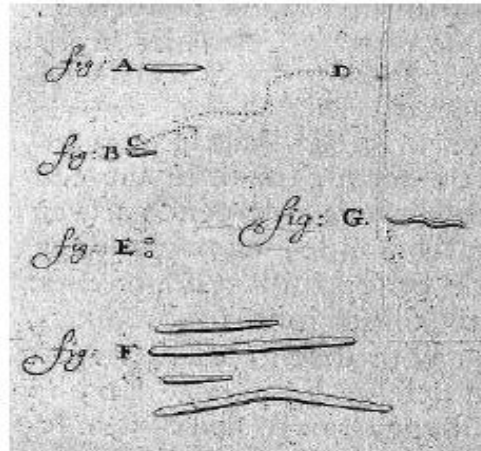 fig: A
D
fig: B C
fig: G.
fig: E
fig: F